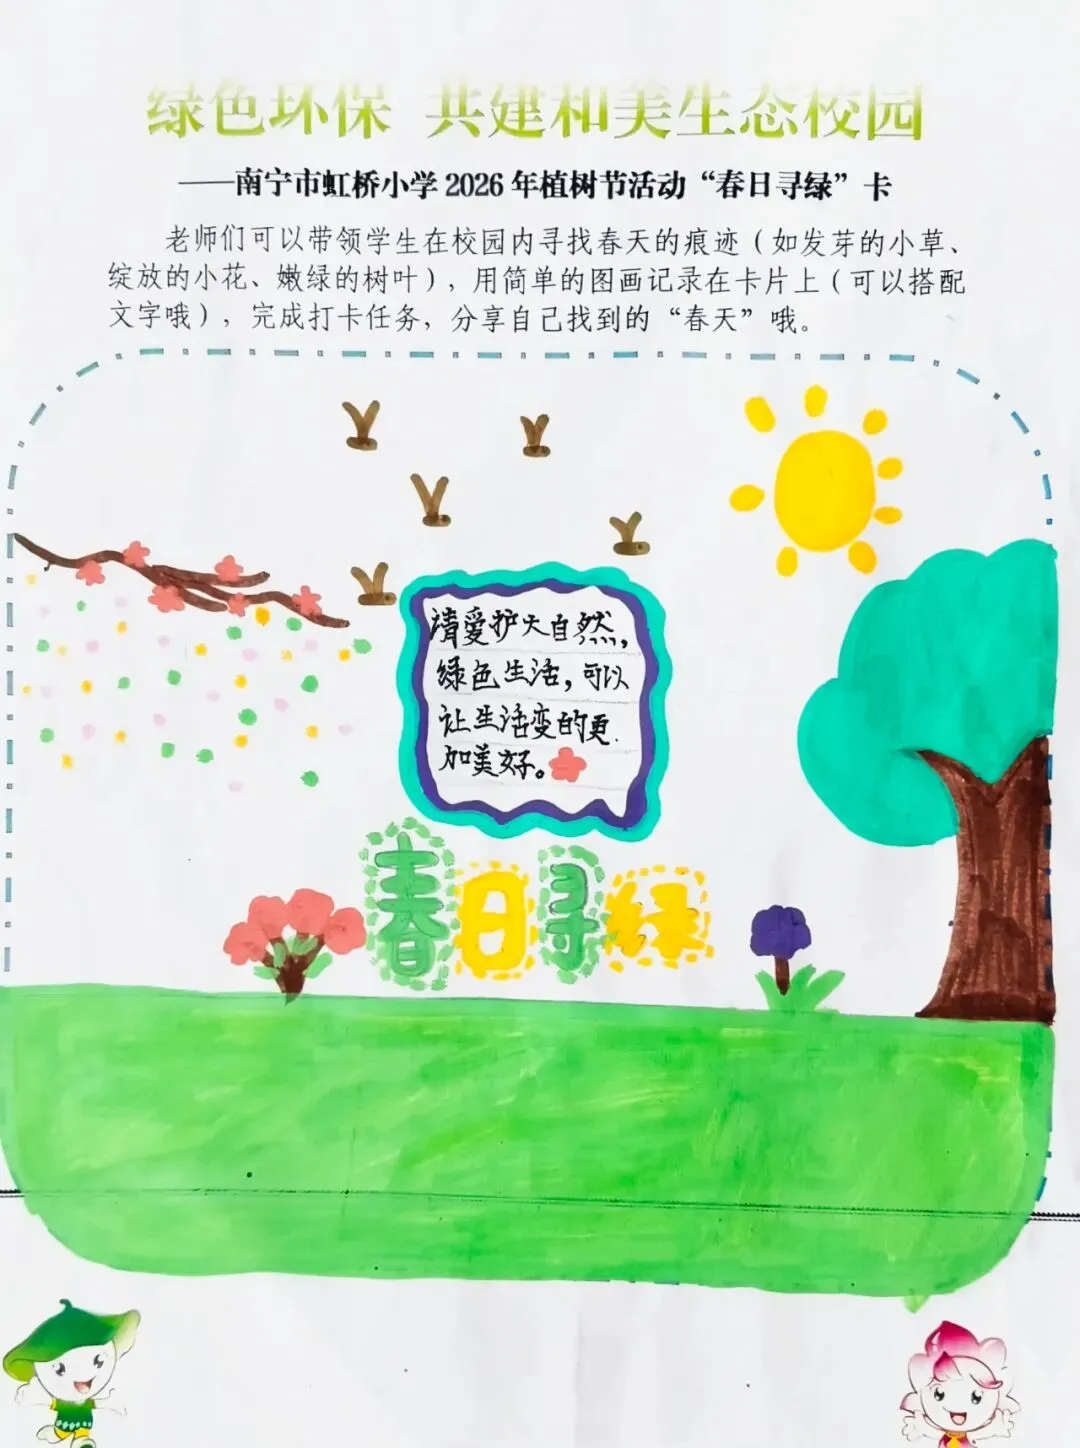 绿色环保 共建和美生态校园
——南宁市虹桥小学 2026 年植树节活动“春日寻绿”卡
老师们可以带领学生在校园内寻找春天的痕迹（如发芽的小草、
绽放的小花、嫩绿的树叶），用简单的图画记录在卡片上（可以搭配
文字哦），完成打卡任务，分享自己找到的“春天”哦。
请爱护大自然，
绿色生活，可以
让生活变的更
加美好。
春日寻绿